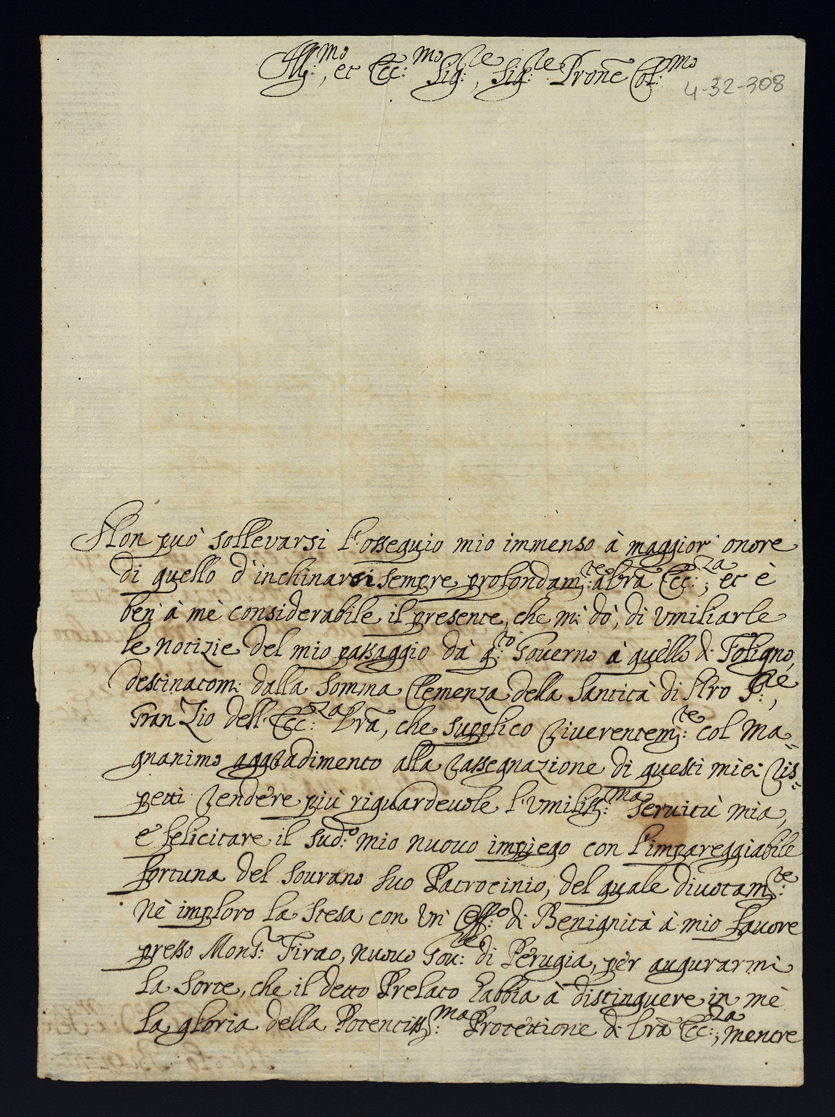 Ill:mo, et Ecc:mo Sig:re, Sig:re Prone Col:mo
4-32-308
Non può sollevarsi l'ossequio mio immenso à maggior onore
di quello d'inchinarsi sempre profondam:te à Vra Ecc:za, et è
ben à mè considerabile il presente, che mi dò, di umiliarle
le notizie del mio passaggio dà q:to Governo à quello di Foligno,
destinatomi dalla somma Clemenza della Santità di Nro S:re,
Gran Zio dell'Ecc:za Vra, che supplico riverentem:te col Ma=
gnanimo aggradimento alla rassegnazione di questi miei ris=
petti rendere più riguardevole l'umiliss:ma servitù mia,
e felicitare il sud:o mio nuovo impiego con l'impareggiabile
fortuna del sourano suo Patrocinio, del quale divotam:te
nè imploro la stesa con un' eff:o di Benignità à mio favore
presso Mons:r Firao, nuovo Gov:re di Perugia, pèr augurarmi
la sorte, che il detto Prelato habbia à distinguere in mè
la gloria della Potentiss:ma Protettione di Vra Ecc:za, mentre